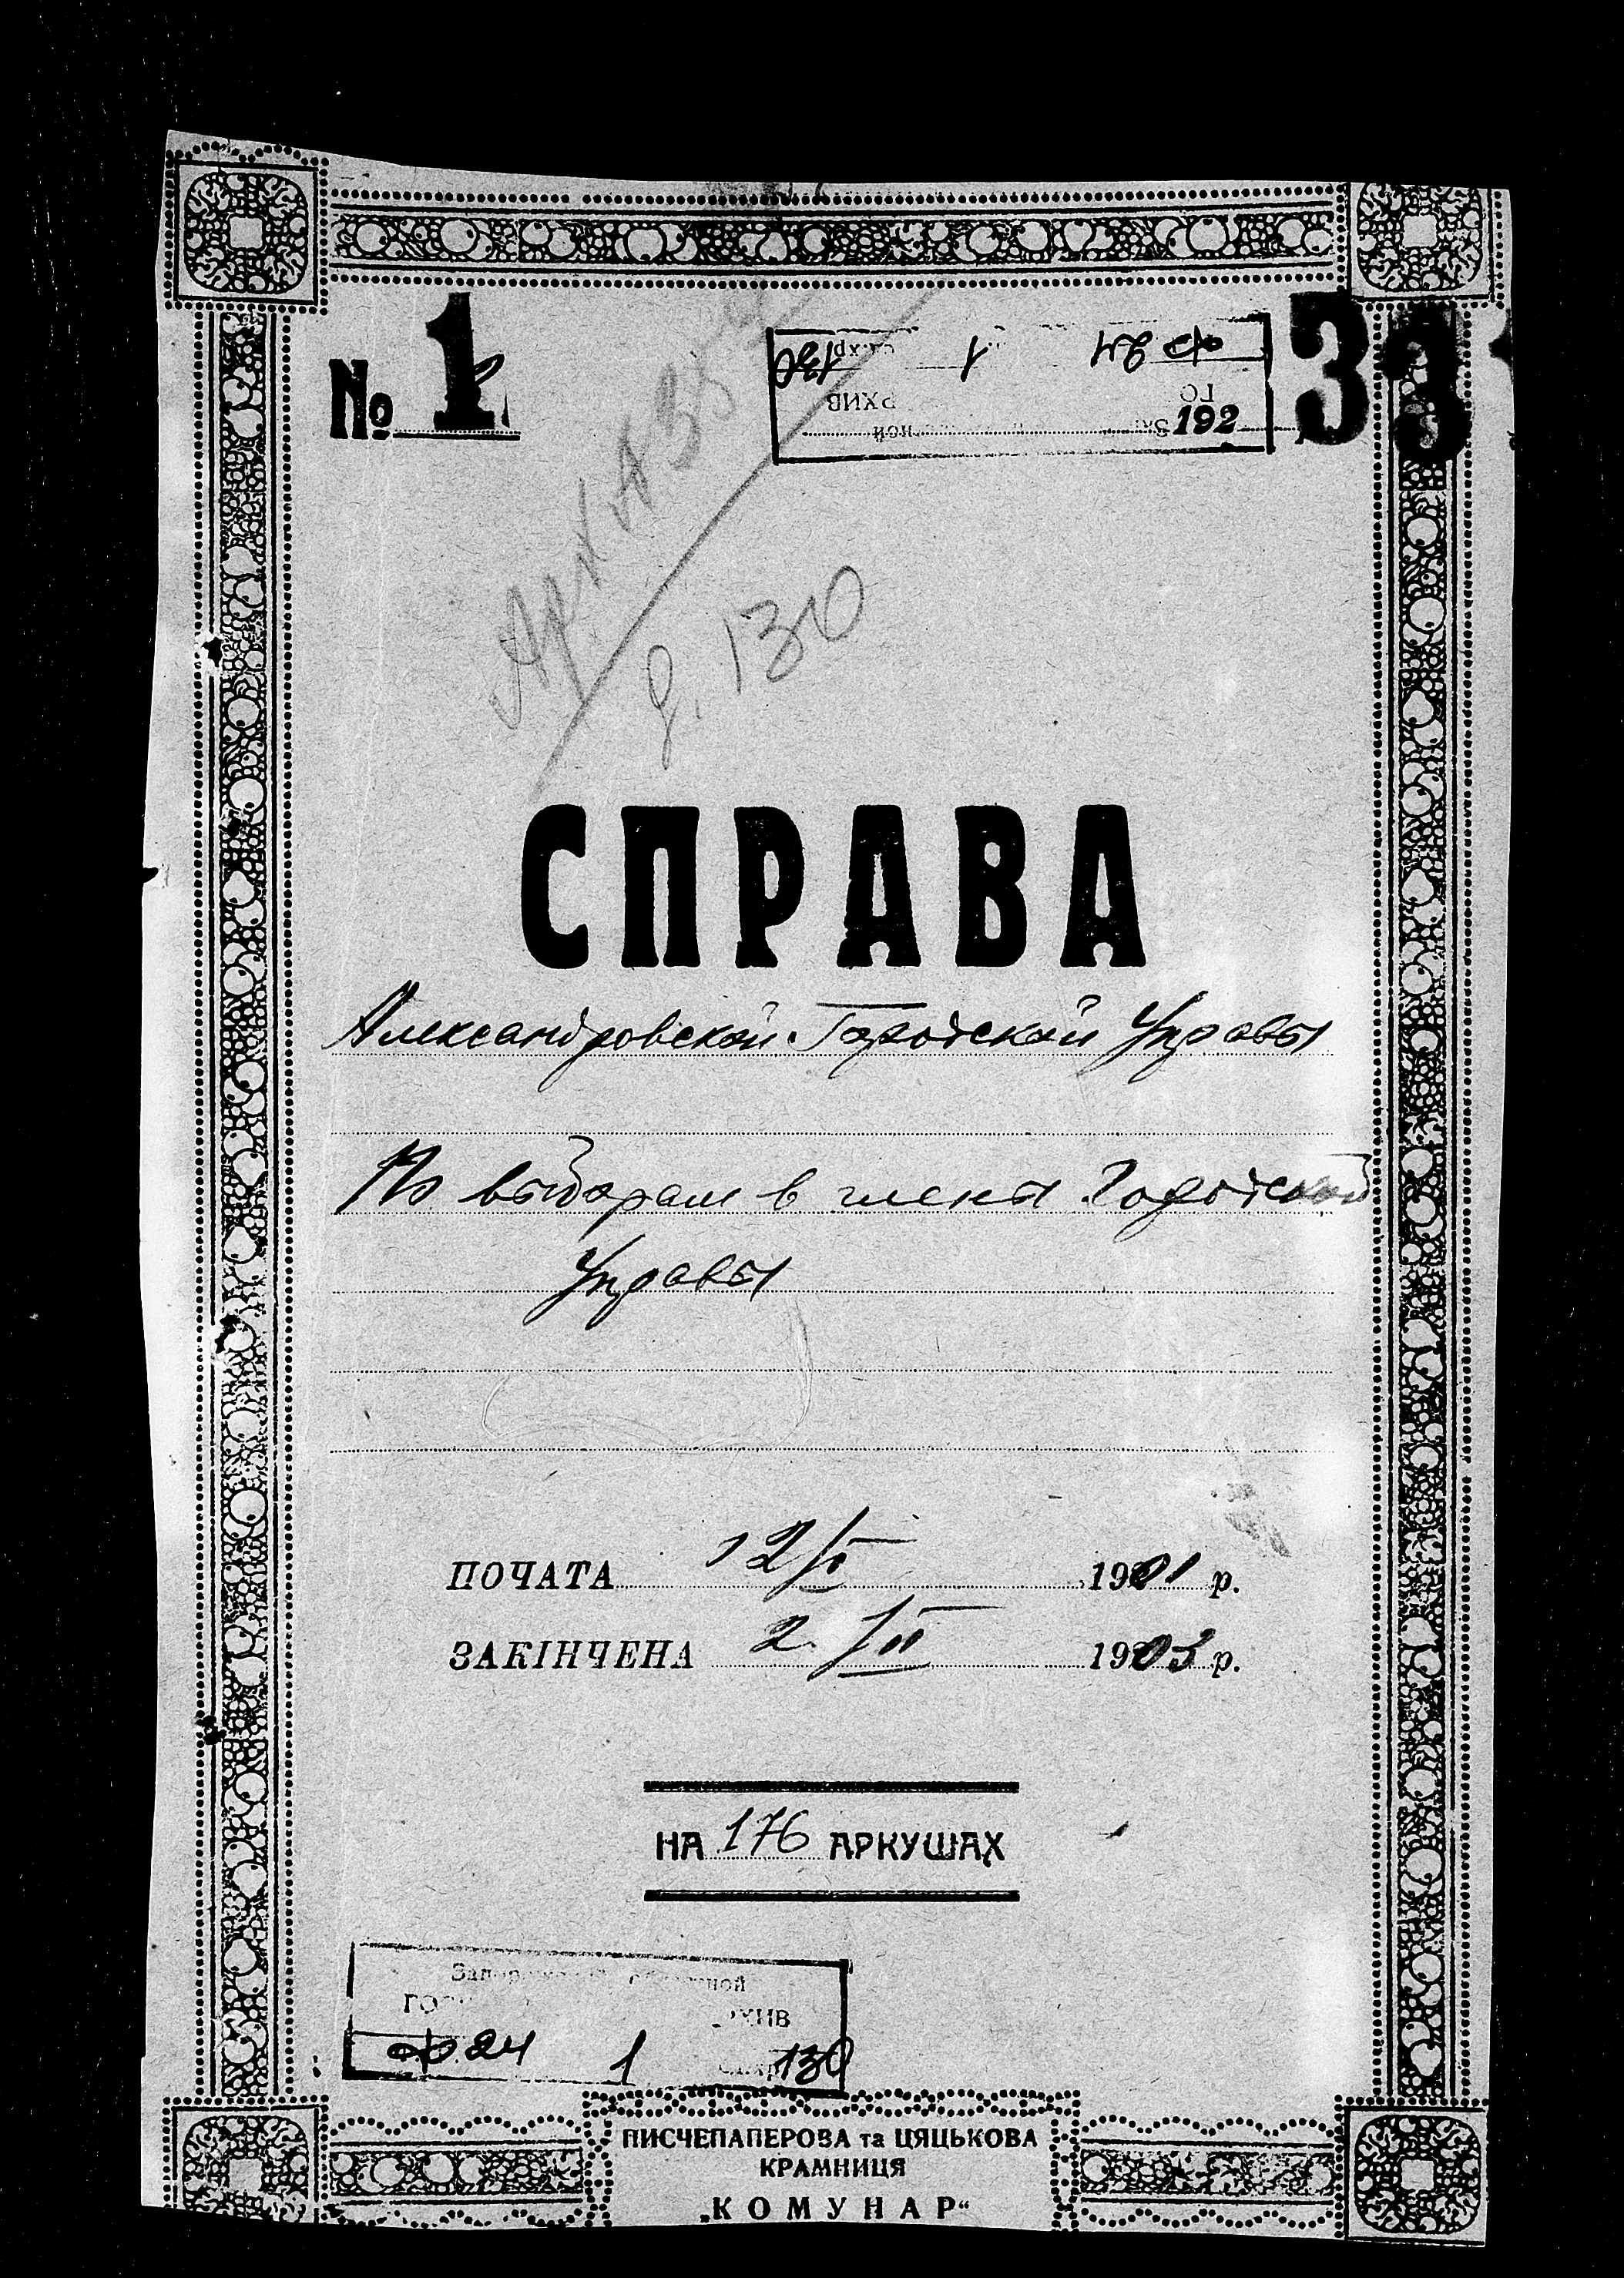 № 1
33
Ф 24 1 130
192
Арх
д. 130
СПРАВА
Александровской Городской Управы
По выборам в члены Городской
Управы
ПОЧАТА 12/I 1901 р.
ЗАКІНЧЕНА 2/II 1903 р.
НА 176 АРКУШАХ
Ф. 24 1 130
ПИСЧЕПАПЕРОВА та ЦЯЦЬКОВА
КРАМНИЦЯ
„КОМУНАР“